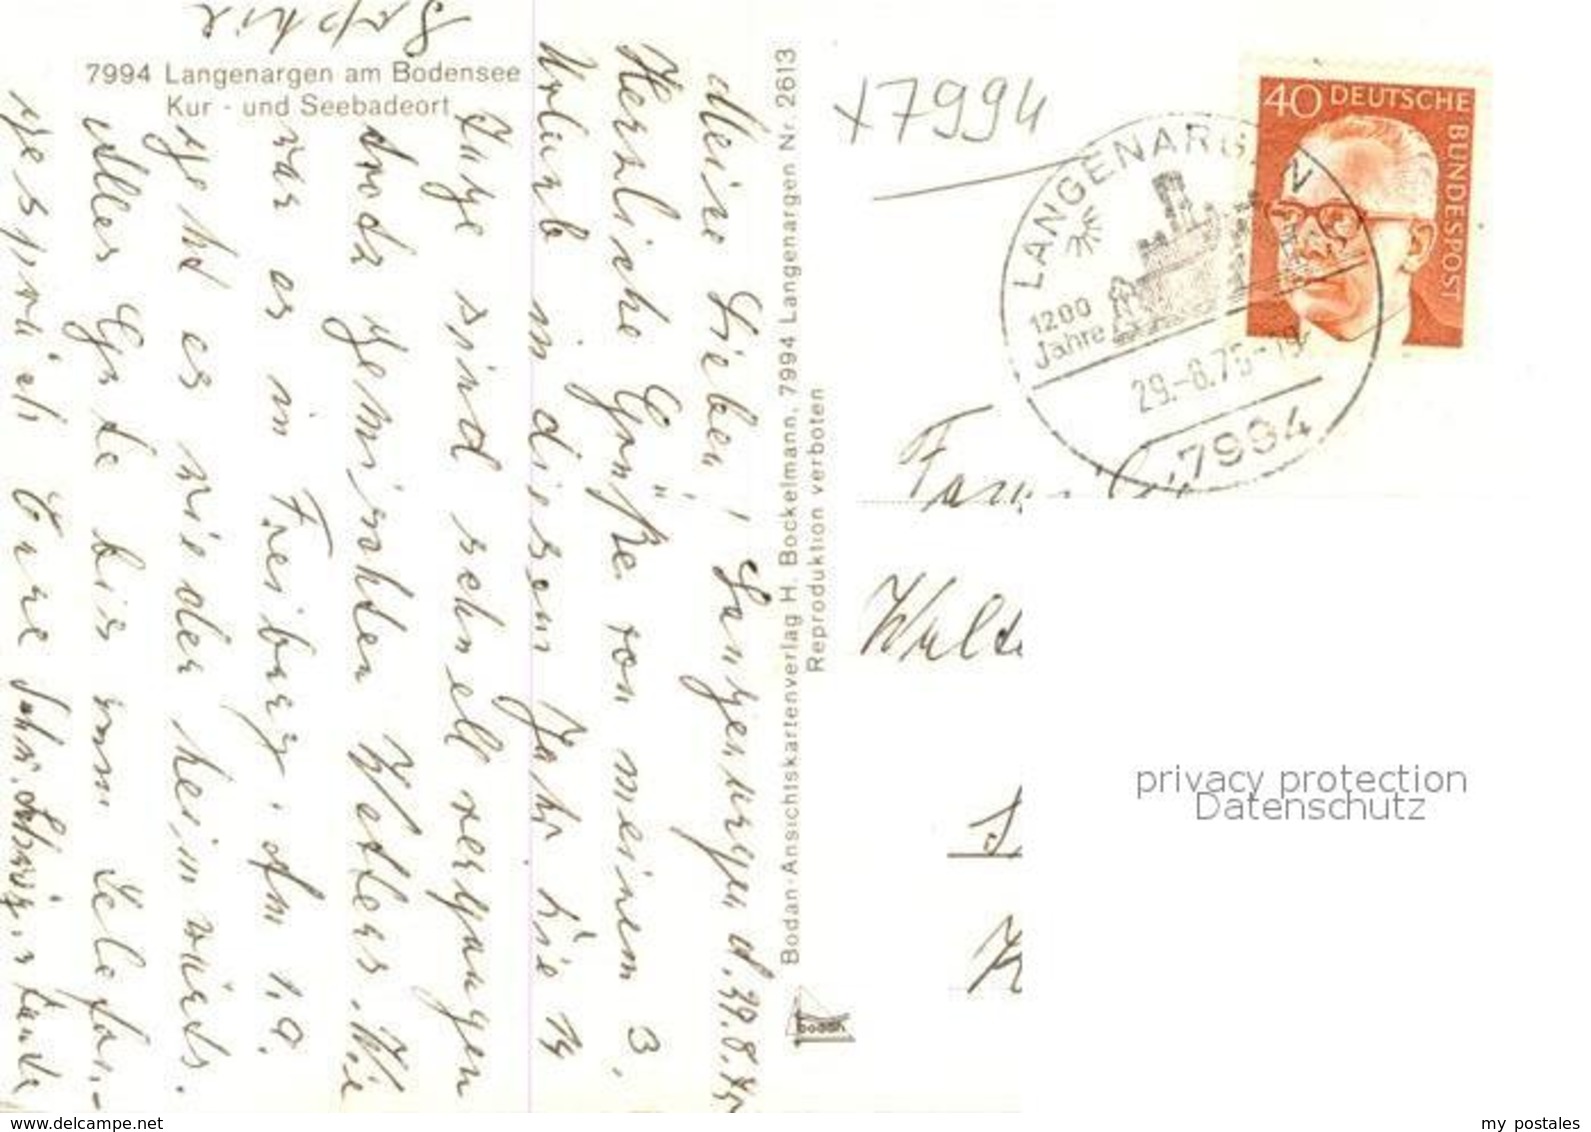 7994 Langenargen am Bodensee
Kur - und Seebadeort
Meine Lieben! Langenargen d. 29.8.75
Herzliche Grüße von meinem 3.
Urlaub in diesem Jahr. Die 14
Tage sind schnell vergangen
trotz gemischten Wetters. Wie
war es in Freiburg. Am 1.9.
geht es wieder heimwärts.
Alles Gute bis zum Telefon-
gespräch Eure Tante
Sophie
Bodan-Ansichtskartenverlag H. Bockelmann, 7994 Langenargen Nr. 2613
Reproduktion verboten
bodan
x7994
40 DEUTSCHE BUNDESPOST
LANGENARGEN
1200
Jahre
29.-8.75-19
7994
Famili
Walt
privacy protection
Datenschutz
www.delcampe.net
my postales